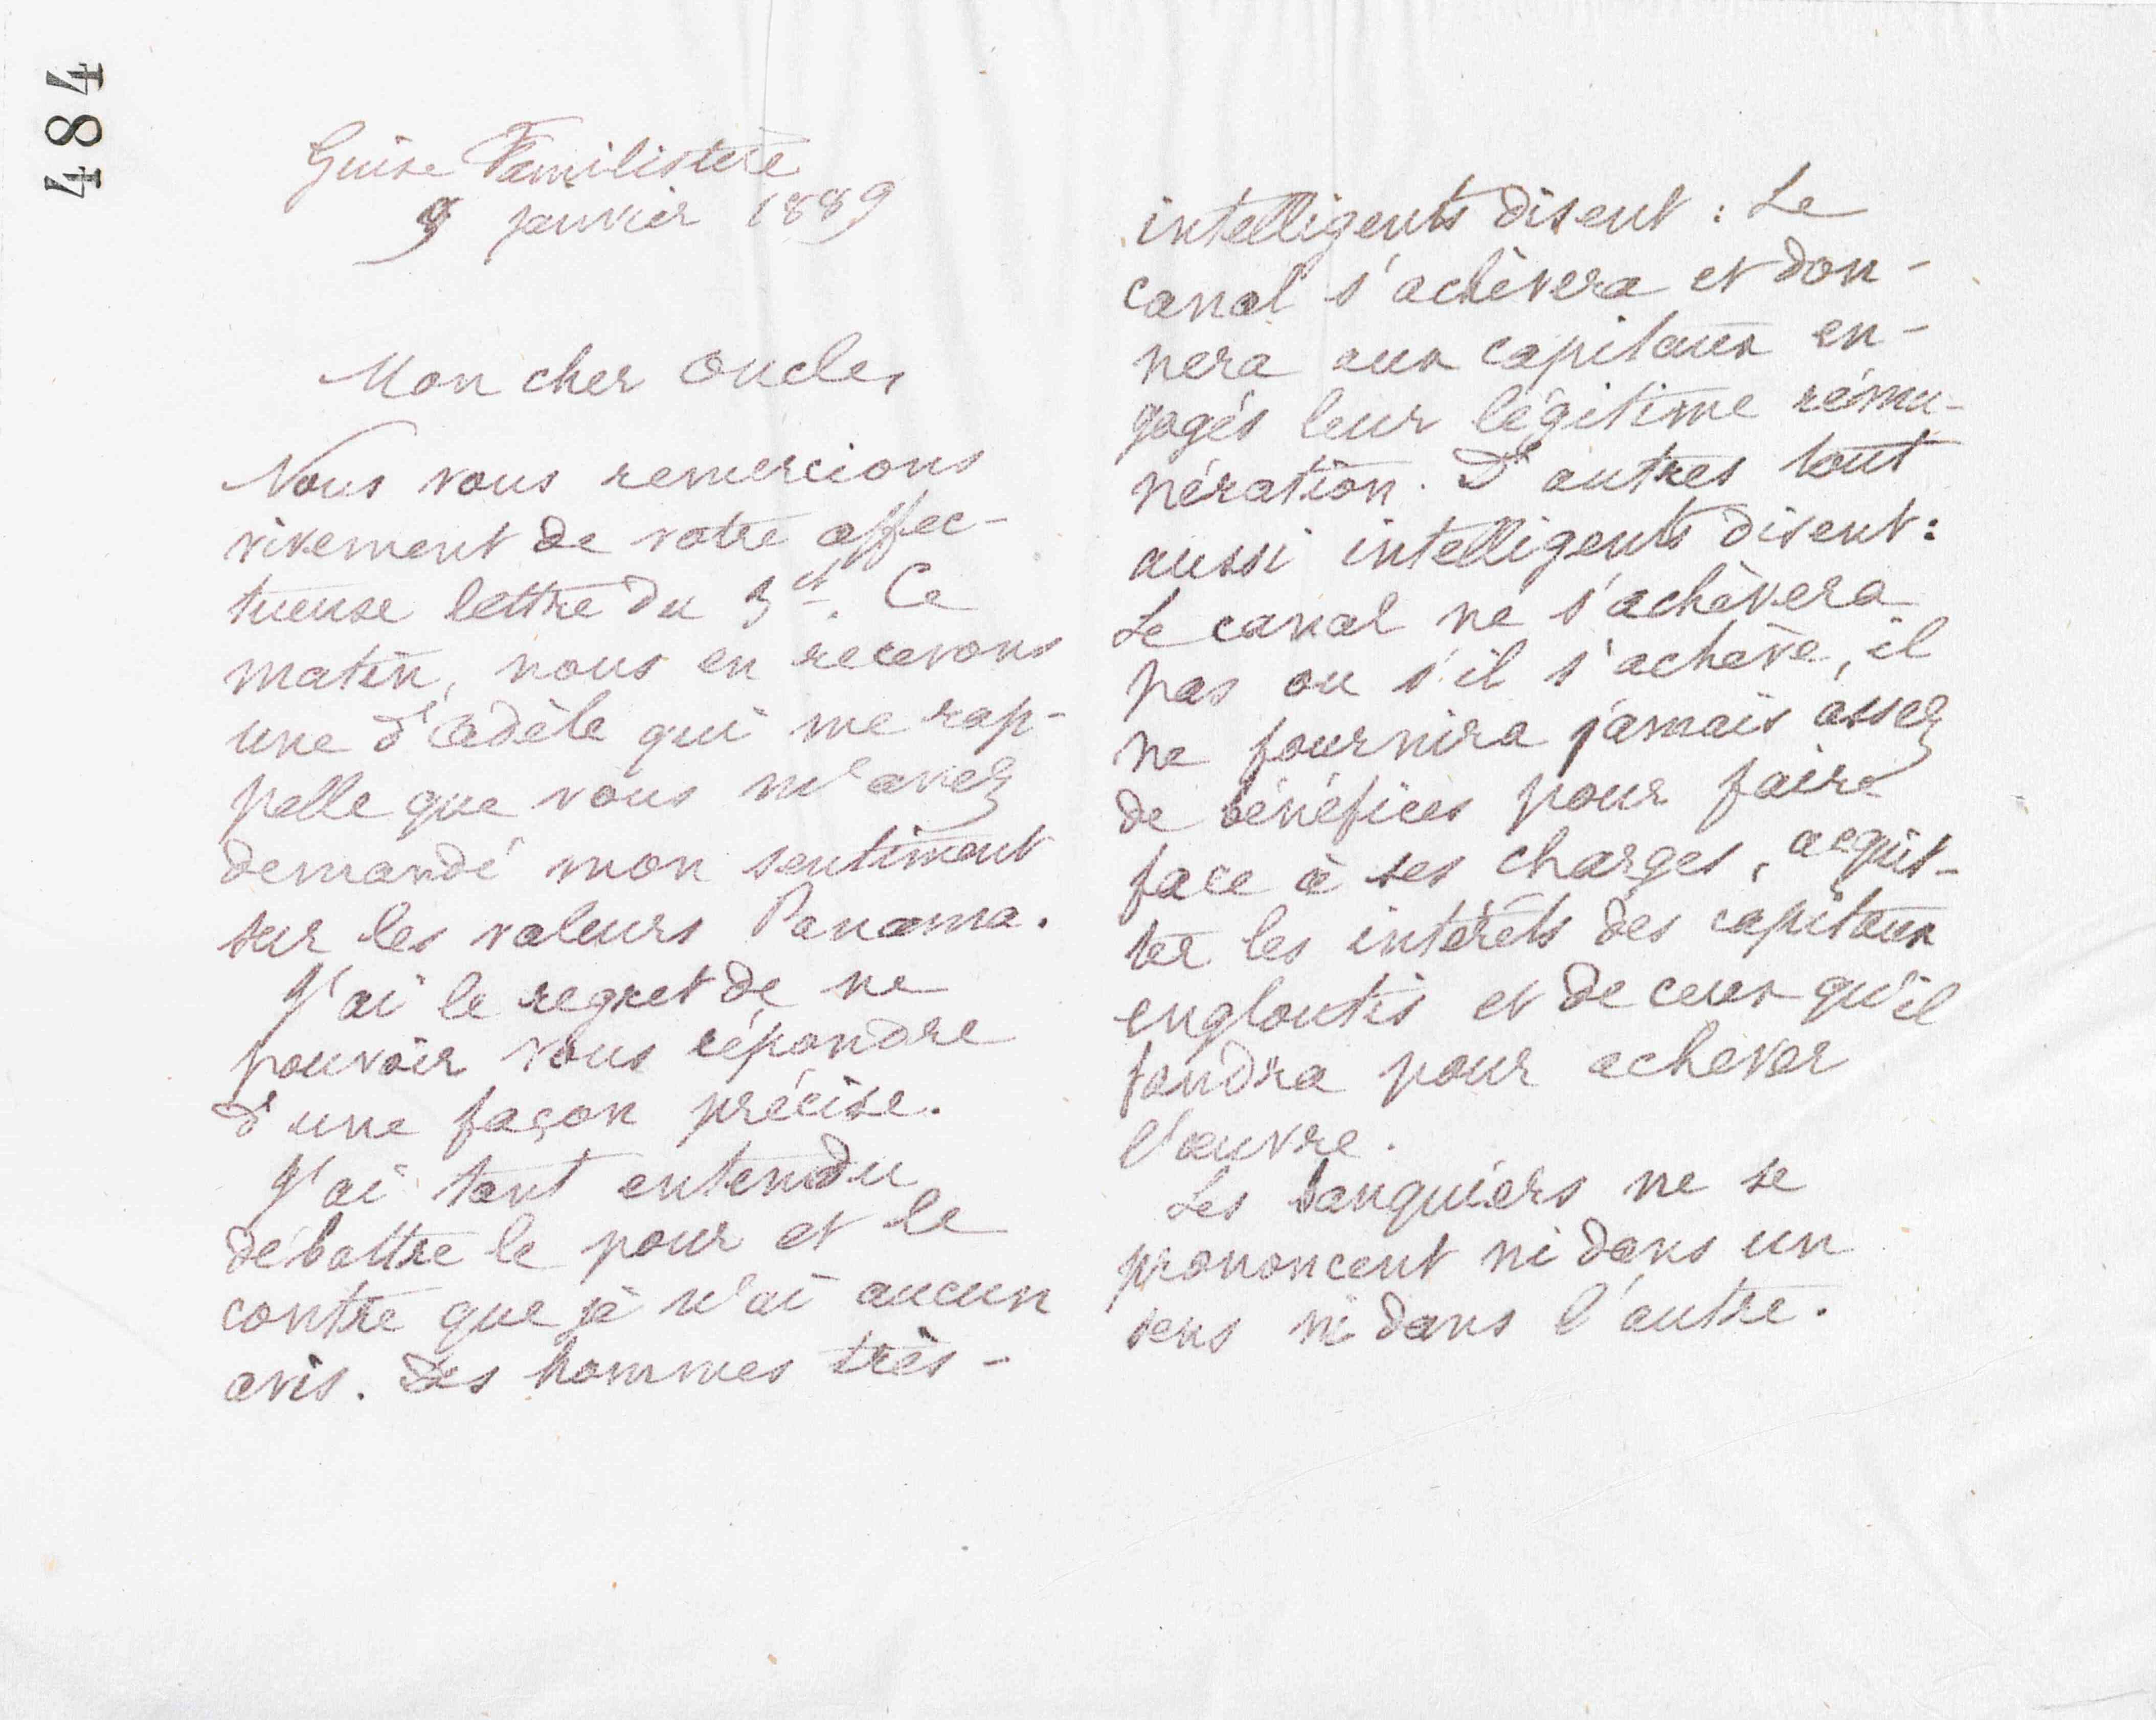 484
Guise Familistère
9 janvier 1889
Mon cher oncle,
Nous vous remercions
vivement de votre affec-
tueuse lettre du 3 ct. Ce
matin, nous en recevons
une d'Adèle qui me rap-
pelle que vous m'avez
demandé mon sentiment
sur les valeurs Panama.
J'ai le regret de ne
pouvoir vous répondre
d'une façon précise.
J'ai tant entendu
débattre le pour et le
contre que je n'ai aucun
avis. Des hommes très-
intelligents disent : Le
canal s'achèvera et don-
nera aux capitaux en-
gagés leur légitime rému-
nération. D'autres tout
aussi intelligents disent :
Le canal ne s'achèvera
pas ou s'il s'achève, il
ne fournira jamais assez
de bénéfices pour faire
face à ses charges, acquit-
ter les intérêts des capitaux
engloutis et de ceux qu'il
faudra pour achever
l'œuvre.
Les banquiers ne se
prononcent ni dans un
sens ni dans l'autre.